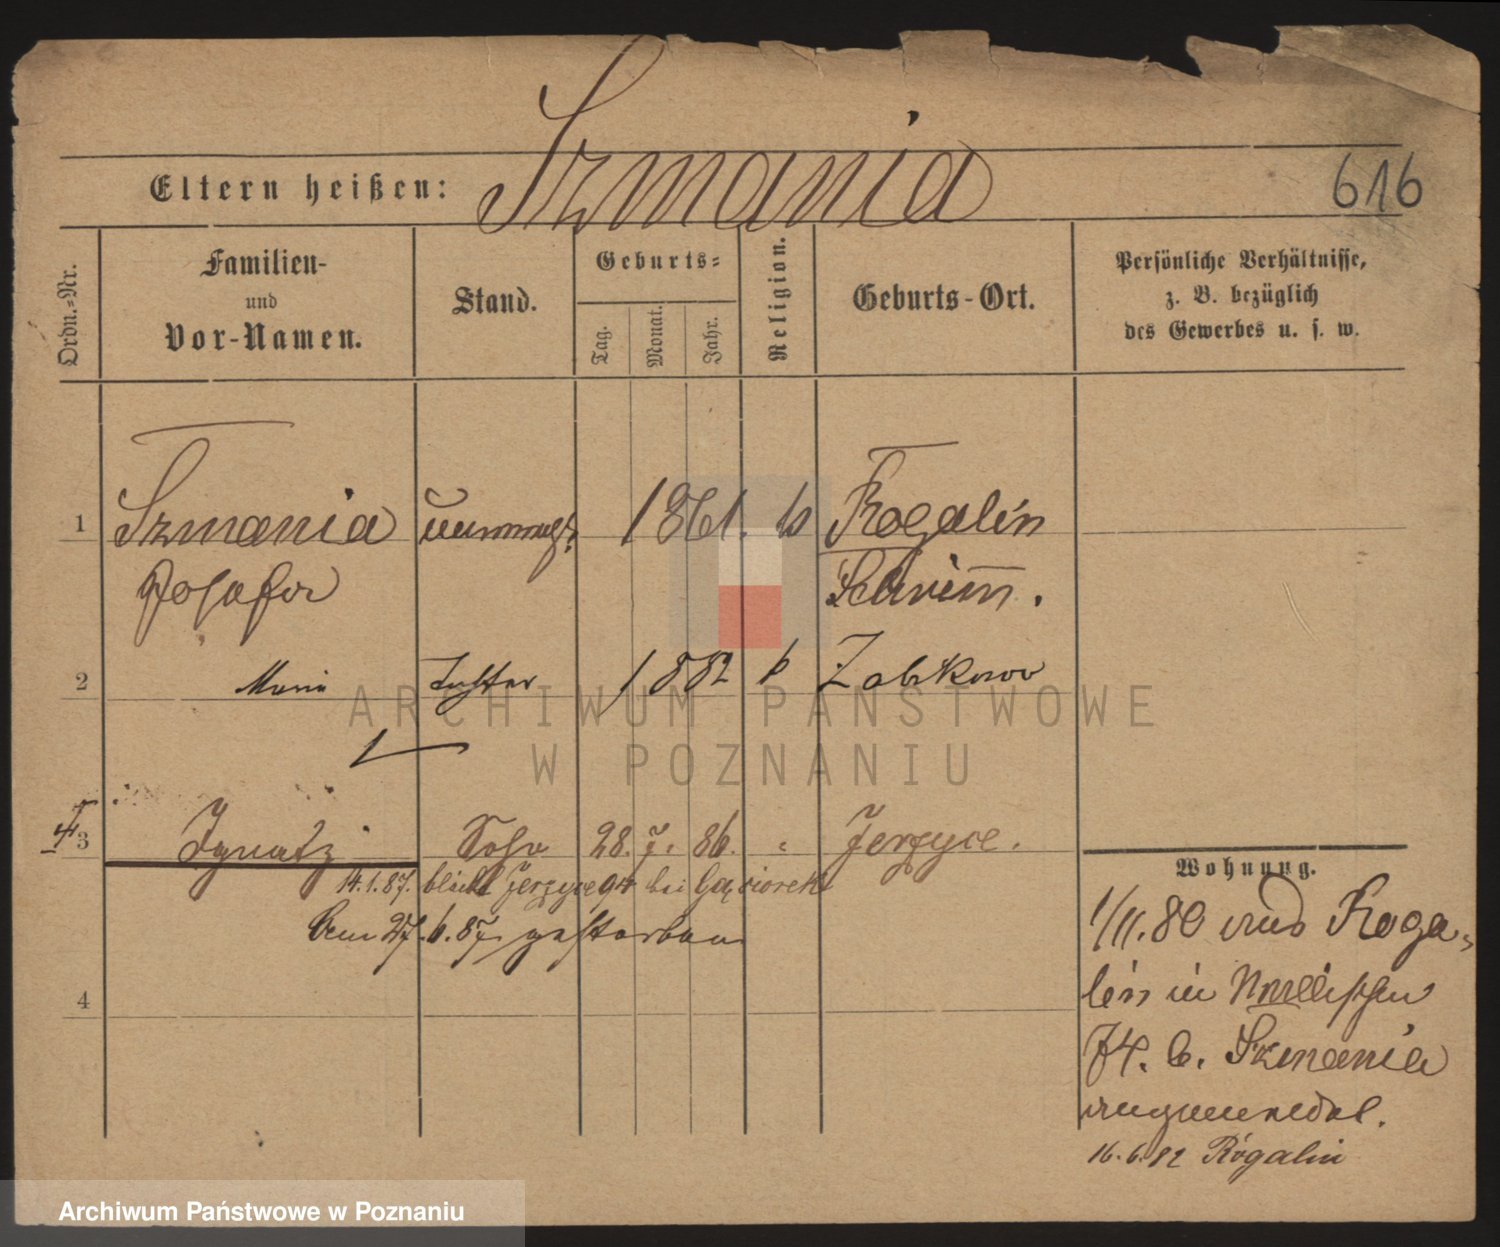 Szmania
Eltern heißen:
616
Ordn.-Nr.
Familien-
und
Vor-Namen.
Stand.
Geburts-
Tag.
Monat.
Jahr.
Religion.
Geburts-Ort.
Persönliche Verhältnisse,
z. B. bezüglich
des Gewerbes u. s. w.
1 Szmania 1861. k Rogalin
Josefa Schrim.
2 Marie Tochter 1882 k Zabikowo
ARCHIWUM PAŃSTWOWE
W POZNANIU
3 Ignatz Sohn 28. 7. 86. " Jerzyce.
14.1.87. bleibt Jerzyce 94 bei Gąsiorek
Am 27.6.87 gestorben
4
Wohnung.
1/11.80 aus Roga-
lin in
74. b. Szmania
angemeldet.
16.6.82 Rogalin
Archiwum Państwowe w Poznaniu